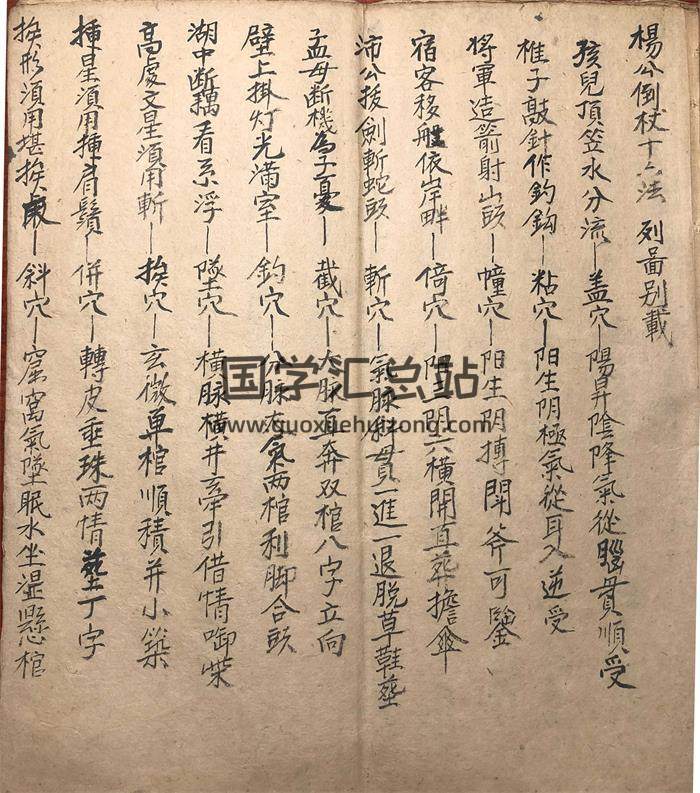 楊公倒杖十六法 列啚别載
孩兒頂笠水分流—盖穴—陽昇陰降氣從腦貫順受
椎子敲針作釣鈎—粘穴—阳生阴極氣從耳入逆受
將軍造箭射山頭—幢穴—阳生阴搏閗斧可鑒
宿客移船依岸畔—倚穴—阳三阴六橫開直葬擔傘
沛公拔劍斬蛇頭—斬穴—氣脉斜貫一進一退脱草鞋塟
孟母断機為子憂—截穴—大脉直奔双棺八字立向
壁上掛灯光满室—釣穴—分脉左氣两棺利脚合頭
湖中断藕看糸浮—墜穴—橫脉橫井牽引借情啣柴
高處文星須用斬—挨穴—玄微单棺順積并小築
揷星須用揷肩鬚—併穴—轉皮垂珠两情塟丁字
挨形須用堪挨處—斜穴—窟窩氣墜眠水坐湿懸棺
国学汇总站
www.guoxuehuizong.com